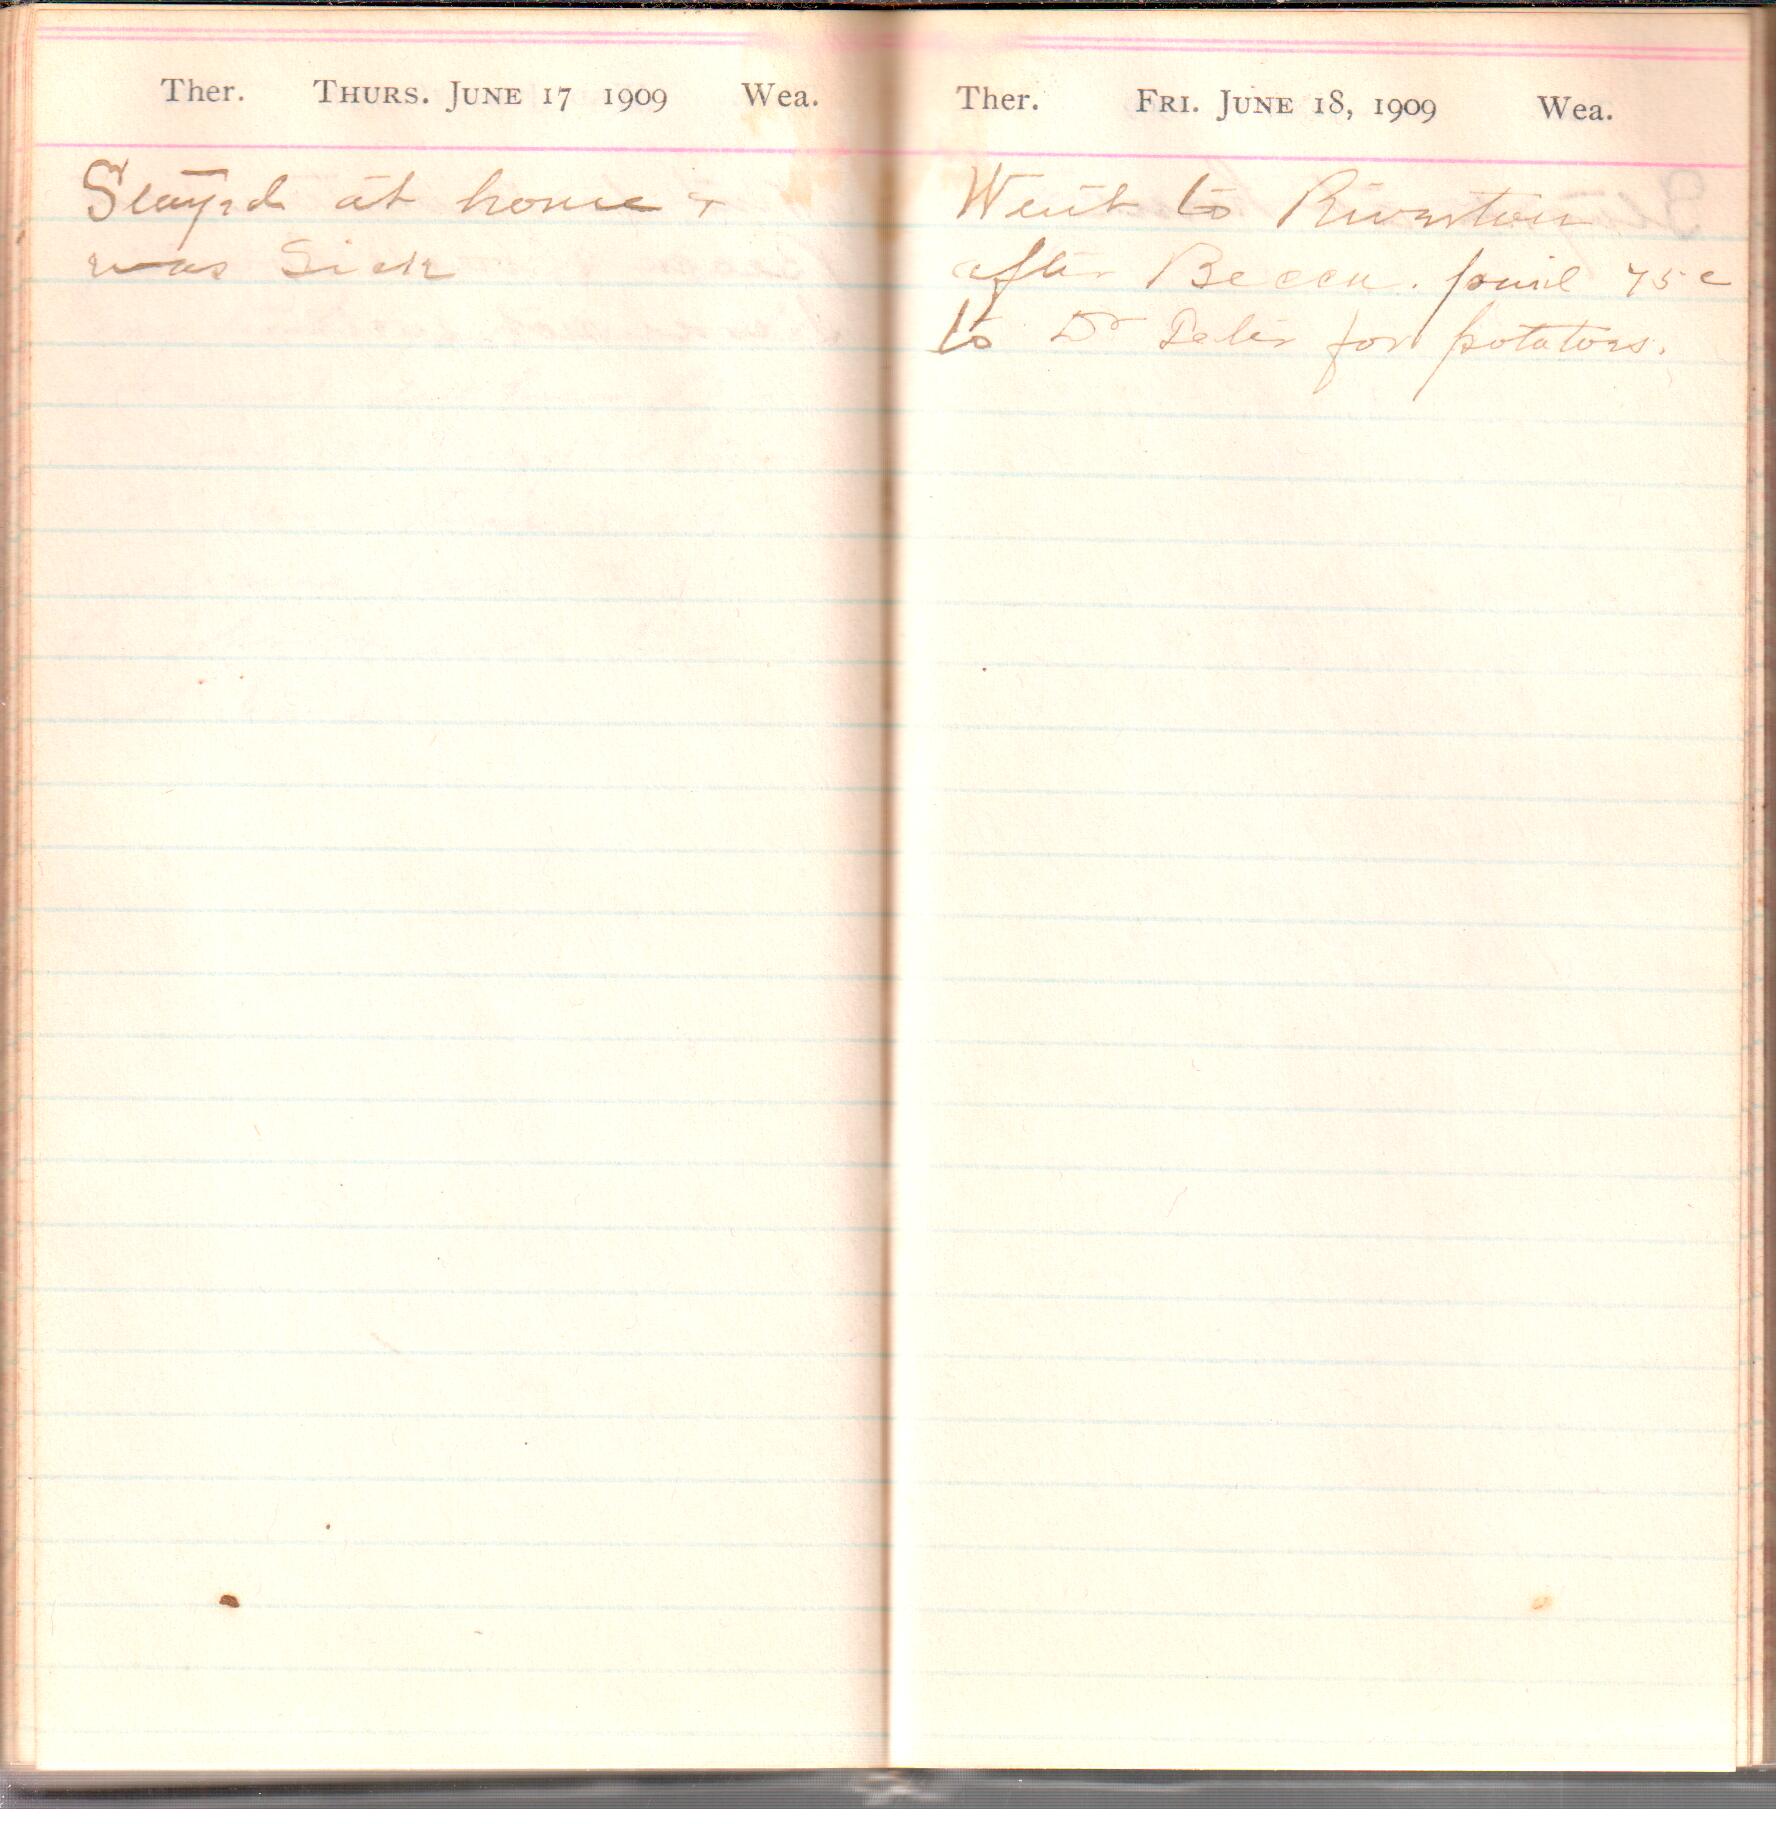 Ther. THURS. JUNE 17 1909 Wea.
Stayed at home +
was Sick
Ther. FRI. JUNE 18, 1909 Wea.
Went to Riverton
after Becca. paid 75 c
to Dr for potatoes.